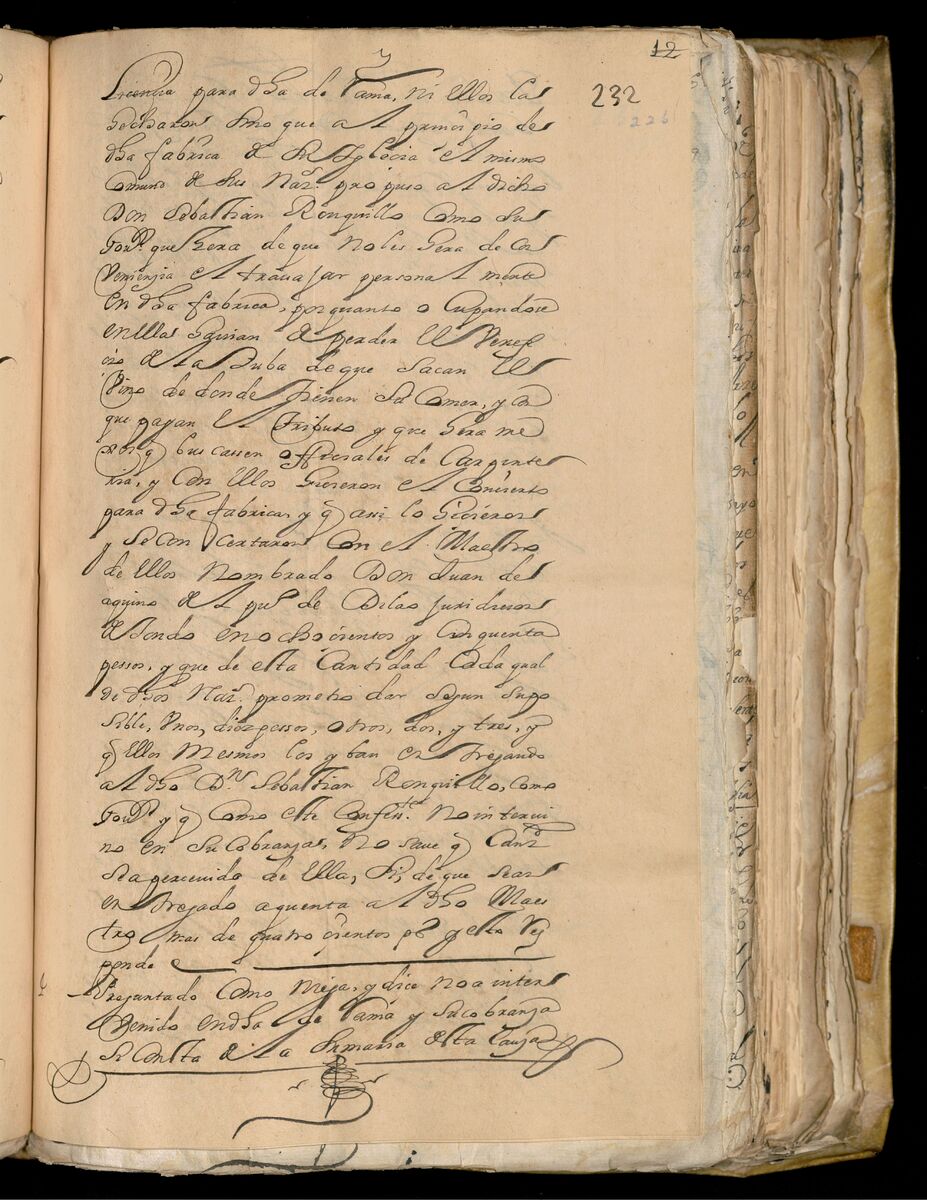 12
232
226
Licencia para dha de rama, ni Ellos la
hecharon sino que al principio de
dha fabrica de su Iglecia el mismo
Comun de sus Nats. propuso al dicho
Don Sebastian Ronquillo Como su
Govor. que hera de que no les hera de con
Veniencia el travajar personalmente
En dha fabrica, porquanto ocupandose
en ella havian de perder el Venefi
cio de la Buba de que sacan el
Vino de donde tienen su Comer, y con
que payan el tributo y que hera me
xor q buscassen officiales de Carpinte
ria, y Con Ellos hicieron el Concierto
para dha fabrica, y q assi lo hicieron
y se con certaron Con el Maestro
de Ellos Nombrado Don Juan de
aquino del pueo. de Dilao Juridicion
de tondo en ochocientos y Cinquenta
pessos, y que de esta Cantidad Cada qual
de dhos Nats. prometio dar segun su po
sible, Unos, diez pessos, otros, dos, y tres, y
q Ellos Mesmos los yban entregando
al dho Dn. Sebastian Ronquillo, Como
Govor. y q Como este Confeste. No intervi
no en su Cobranza, No save q Cantd
se a percevido de Ella, si, de que sean
entregado a quenta al dho Maes
tro mas de quatrocientos ps y esto Res
ponde
Preguntado Como Nieja, y dice No a inter
Venido en dha de rama y su cobranza
si Consta de la sumaria desta Cauza